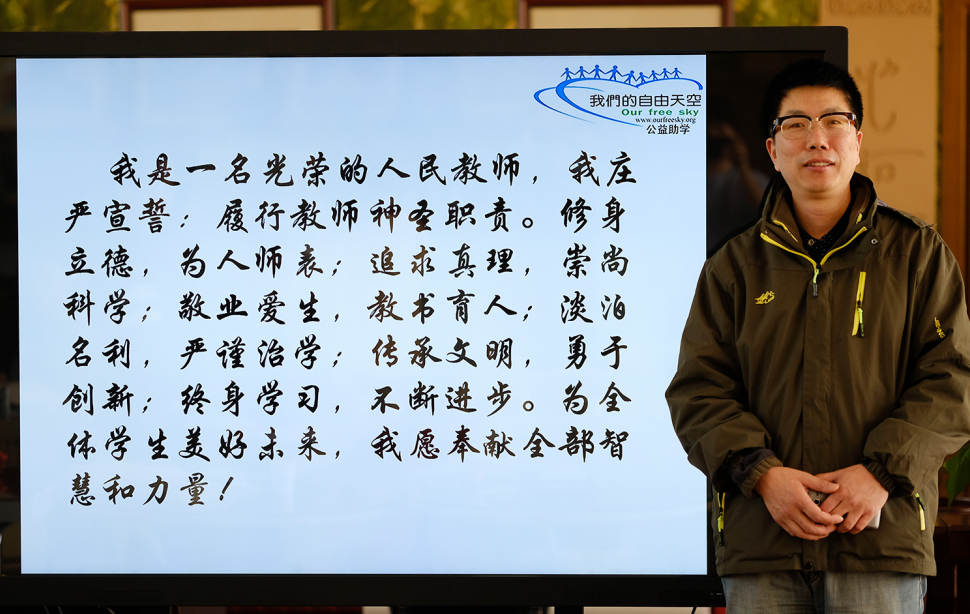 我們的自由天空
Our free sky
www.ourfreesky.org
公益助学
我是一名光荣的人民教师，我庄
严宣誓：履行教师神圣职责。修身
立德，为人师表；追求真理，崇尚
科学；敬业爱生，教书育人；淡泊
名利，严谨治学；传承文明，勇于
创新；终身学习，不断进步。为全
体学生美好未来，我愿奉献全部智
慧和力量！